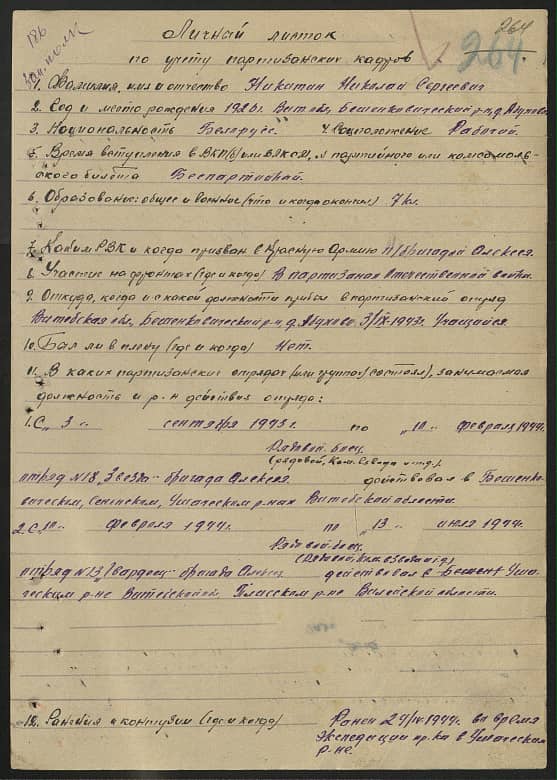 186
264
264
Личный листок
по учету партизанских кадров
1. Фамилия, имя и отчество Никитин Николай Сергеевич
2. Год и место рождения 1926г. Витобл, Бешенковический р-н, д.
3. Национальность Белорус. 4 Соцположение Рабочий.
5. Время вступления в ВКП(б) или ВЛКСМ, № партийного или комсомоль-
ского билета Беспартийный.
6. Образование: общее и военное (что и когда окончил) 7 кл.
7. Каким РВК и когда призван в Красную Армию П/бригадой Алексея.
8. Участие на фронтах (где и когда) В партизанах Отечественной войны.
9. Откуда, когда и с какой должности прибыл в партизанский отряд
Витебская обл, Бешенковический р-н, д. 3/IX-1943г. Учащийся.
10. Был ли в плену (где и когда) Нет.
11. В каких партизанских отрядах (или группах) состоял, занимаемая
должность и р-н действия отряда:
1. С „3" сентября 1943г. по „10" февраля 1944г.
Рядовой боец.
(рядовой, ком. взвода и т.д.)
отряд №18 „Звезда" бригада Алексея действовал в Бешенко-
вическом, Сенненском, Ушачском р-нах Витебской области.
2. С „10" февраля 1944г. по „13" июля 1944г.
Рядовой боец.
(Рядовой, ком. взвода и т.д.)
отряд №13 бригада Алексея действовал в Бешенк Уша-
ческим р-не Витебской обл. Плисском р-не Вилейской области.
12. Ранения и контузии (где и когда) Ранен 27/IV-1944г. во время
экспедиции пр-ка в Ушачском
р-не.